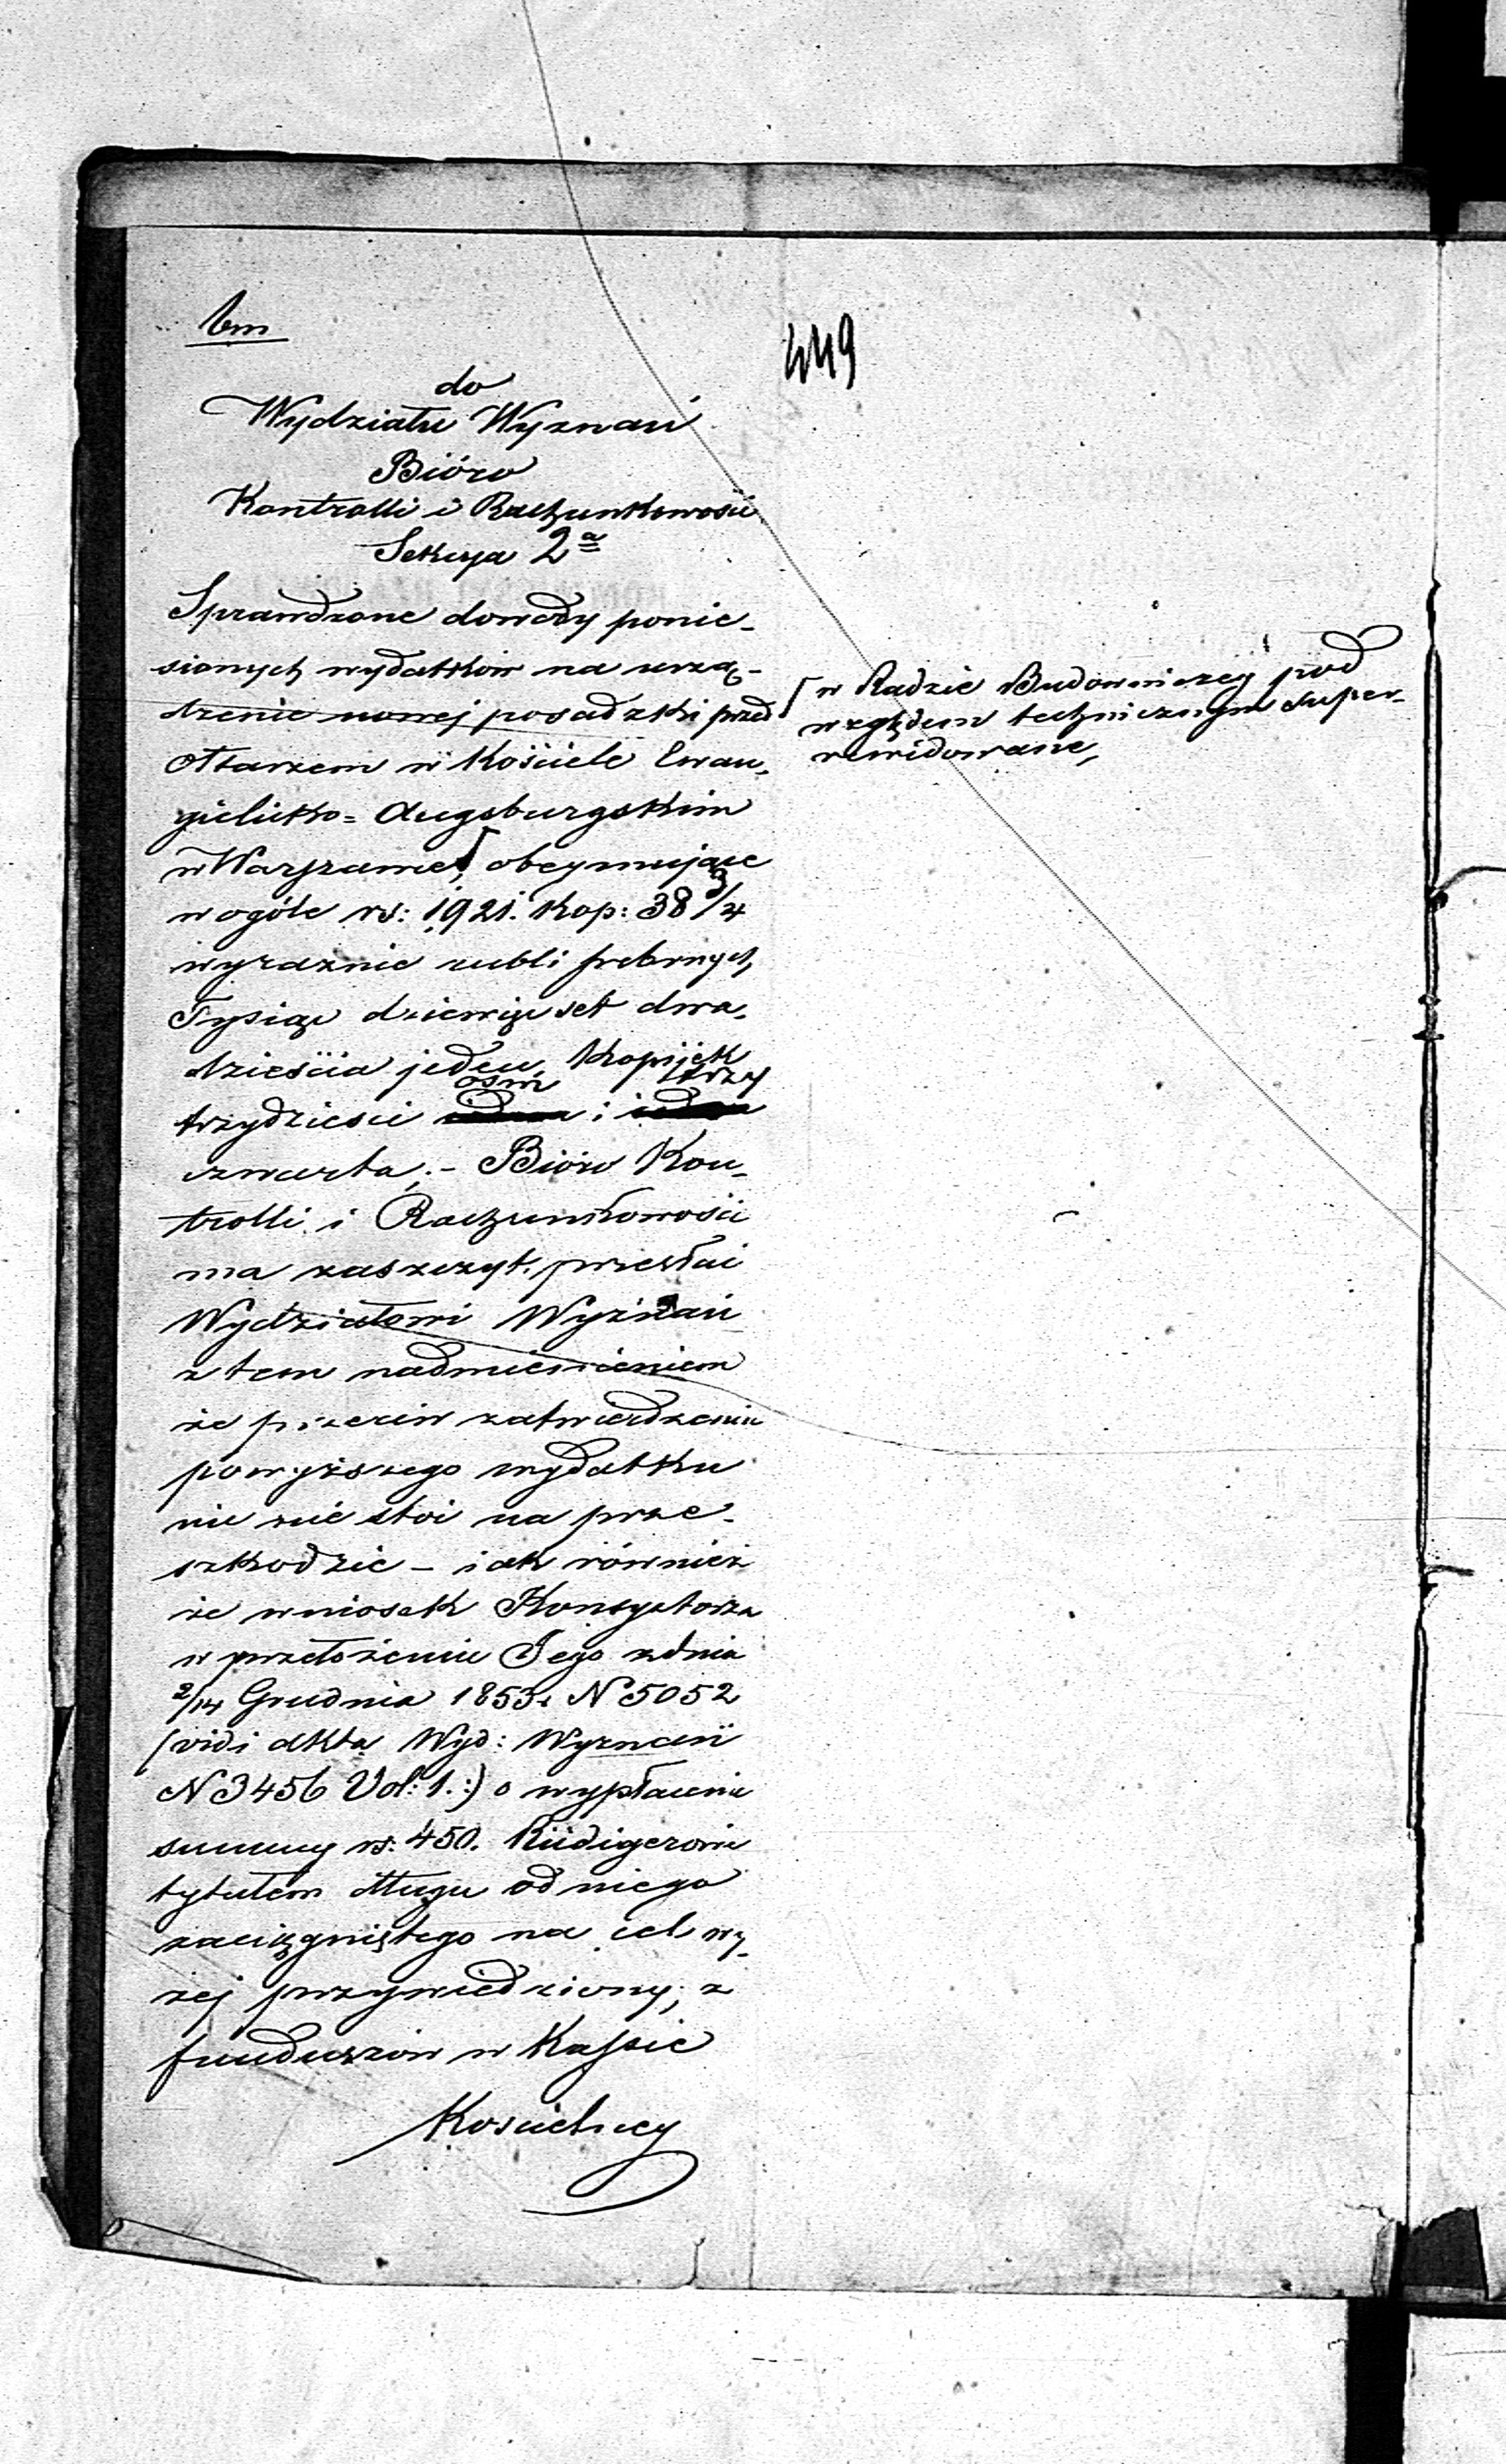 bm
449
do
Wydziału Wyznań
Bióro
Kontrolli i Rachunkowości
Sekcya 2ª
Sprawdzone dowody ponie-
sionych wydatków na urzą-
dzenie nowej posadzki przed
Ołtarzem w Kościele Ewan-
gielicko=Augsburgskim
w Warszawie, ⌈ obeymujące
w ogóle rs: 1921. kop: 38 3/4
wyraznie rubli srebrnych
Tysiąc dziewięćset dwa-
dzieścia jeden, Kopijek
trzydzieści osm i trzy
czwarta.- Bióro Kon-
trolli i Rachunkowości
ma zaszczyt przesłać
Wydziałowi Wyznań
z tem nadmienieniem
że przeciw zatwierdzeniu
powyższego wydatku
nic nie stoi na prze-
szkodzie - iak również
że wniosek Konsystorza
w przełożeniu Jego z dnia
2/14 Grudnia 1853 r. N 5052
(vidi akta Wyd: Wyznań
N 3456 Vol: 1.:) o wypłacenie
summy rs: 450. Rüdigerowi
tytułem długu od niego
zaciągniętego na cel wy-
żej przywiedziony, z
funduszów w Kassie
Kościelney
⌈ w Radzie Budowniczey pod
względem technicznym super-
rewidowane,